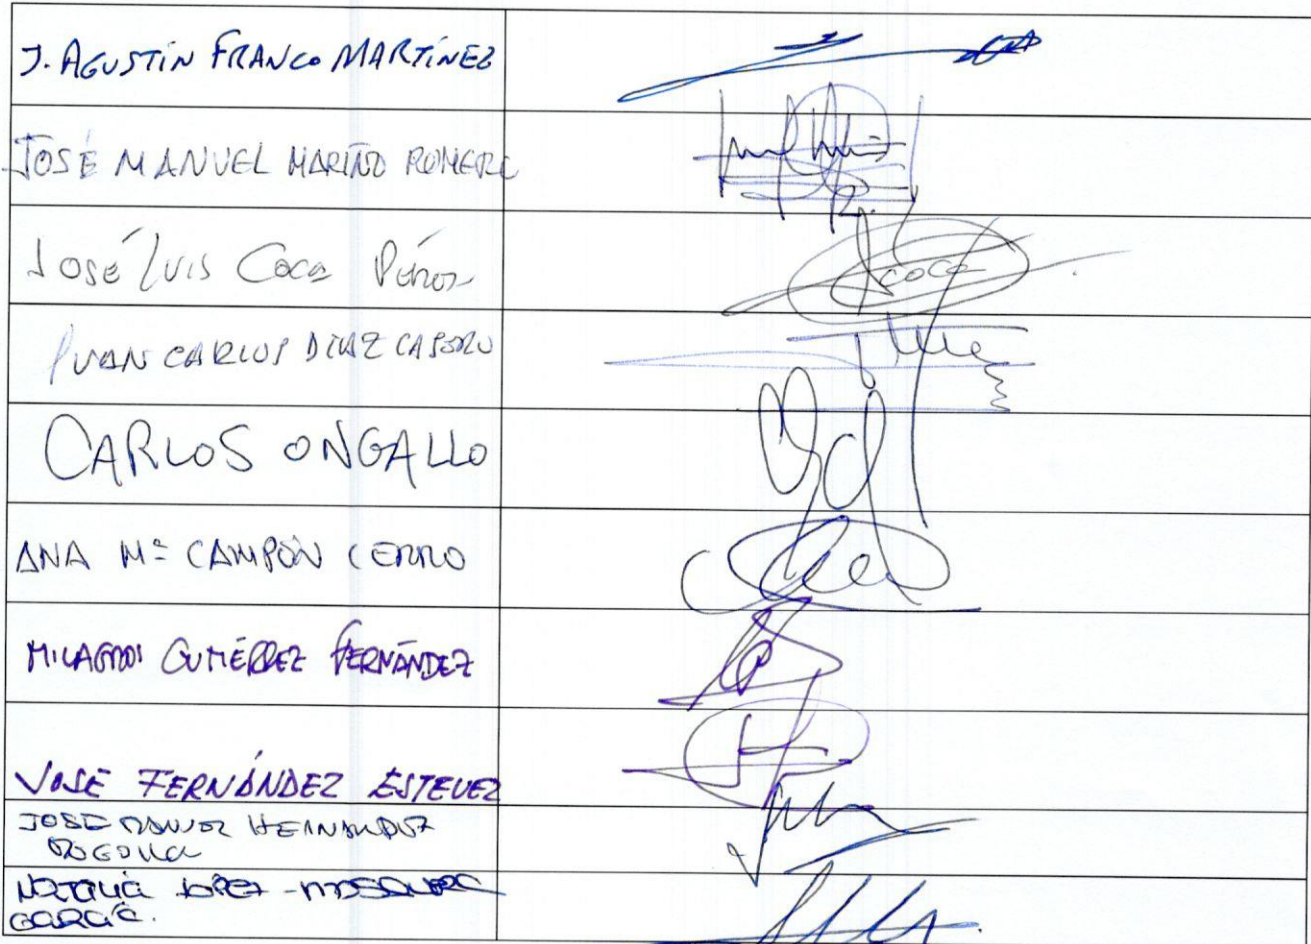 J. AGUSTÍN FRANCO MARTÍNEZ
JOSÉ MANUEL MARIÑO ROMERO
JOSÉ LUIS Coca Pérez
JUAN CARLOS DIAZ CASERO
CARLOS ONGALLO
ANA Mª CAMPÓN CERRO
MILAGROS GUTIÉRREZ FERNÁNDEZ
JOSE FERNÁNDEZ ESTEVEZ
JOSE MANUEL HERNANDEZ
NATALIA LOPEZ-MOSQUERA
GARCÍA.